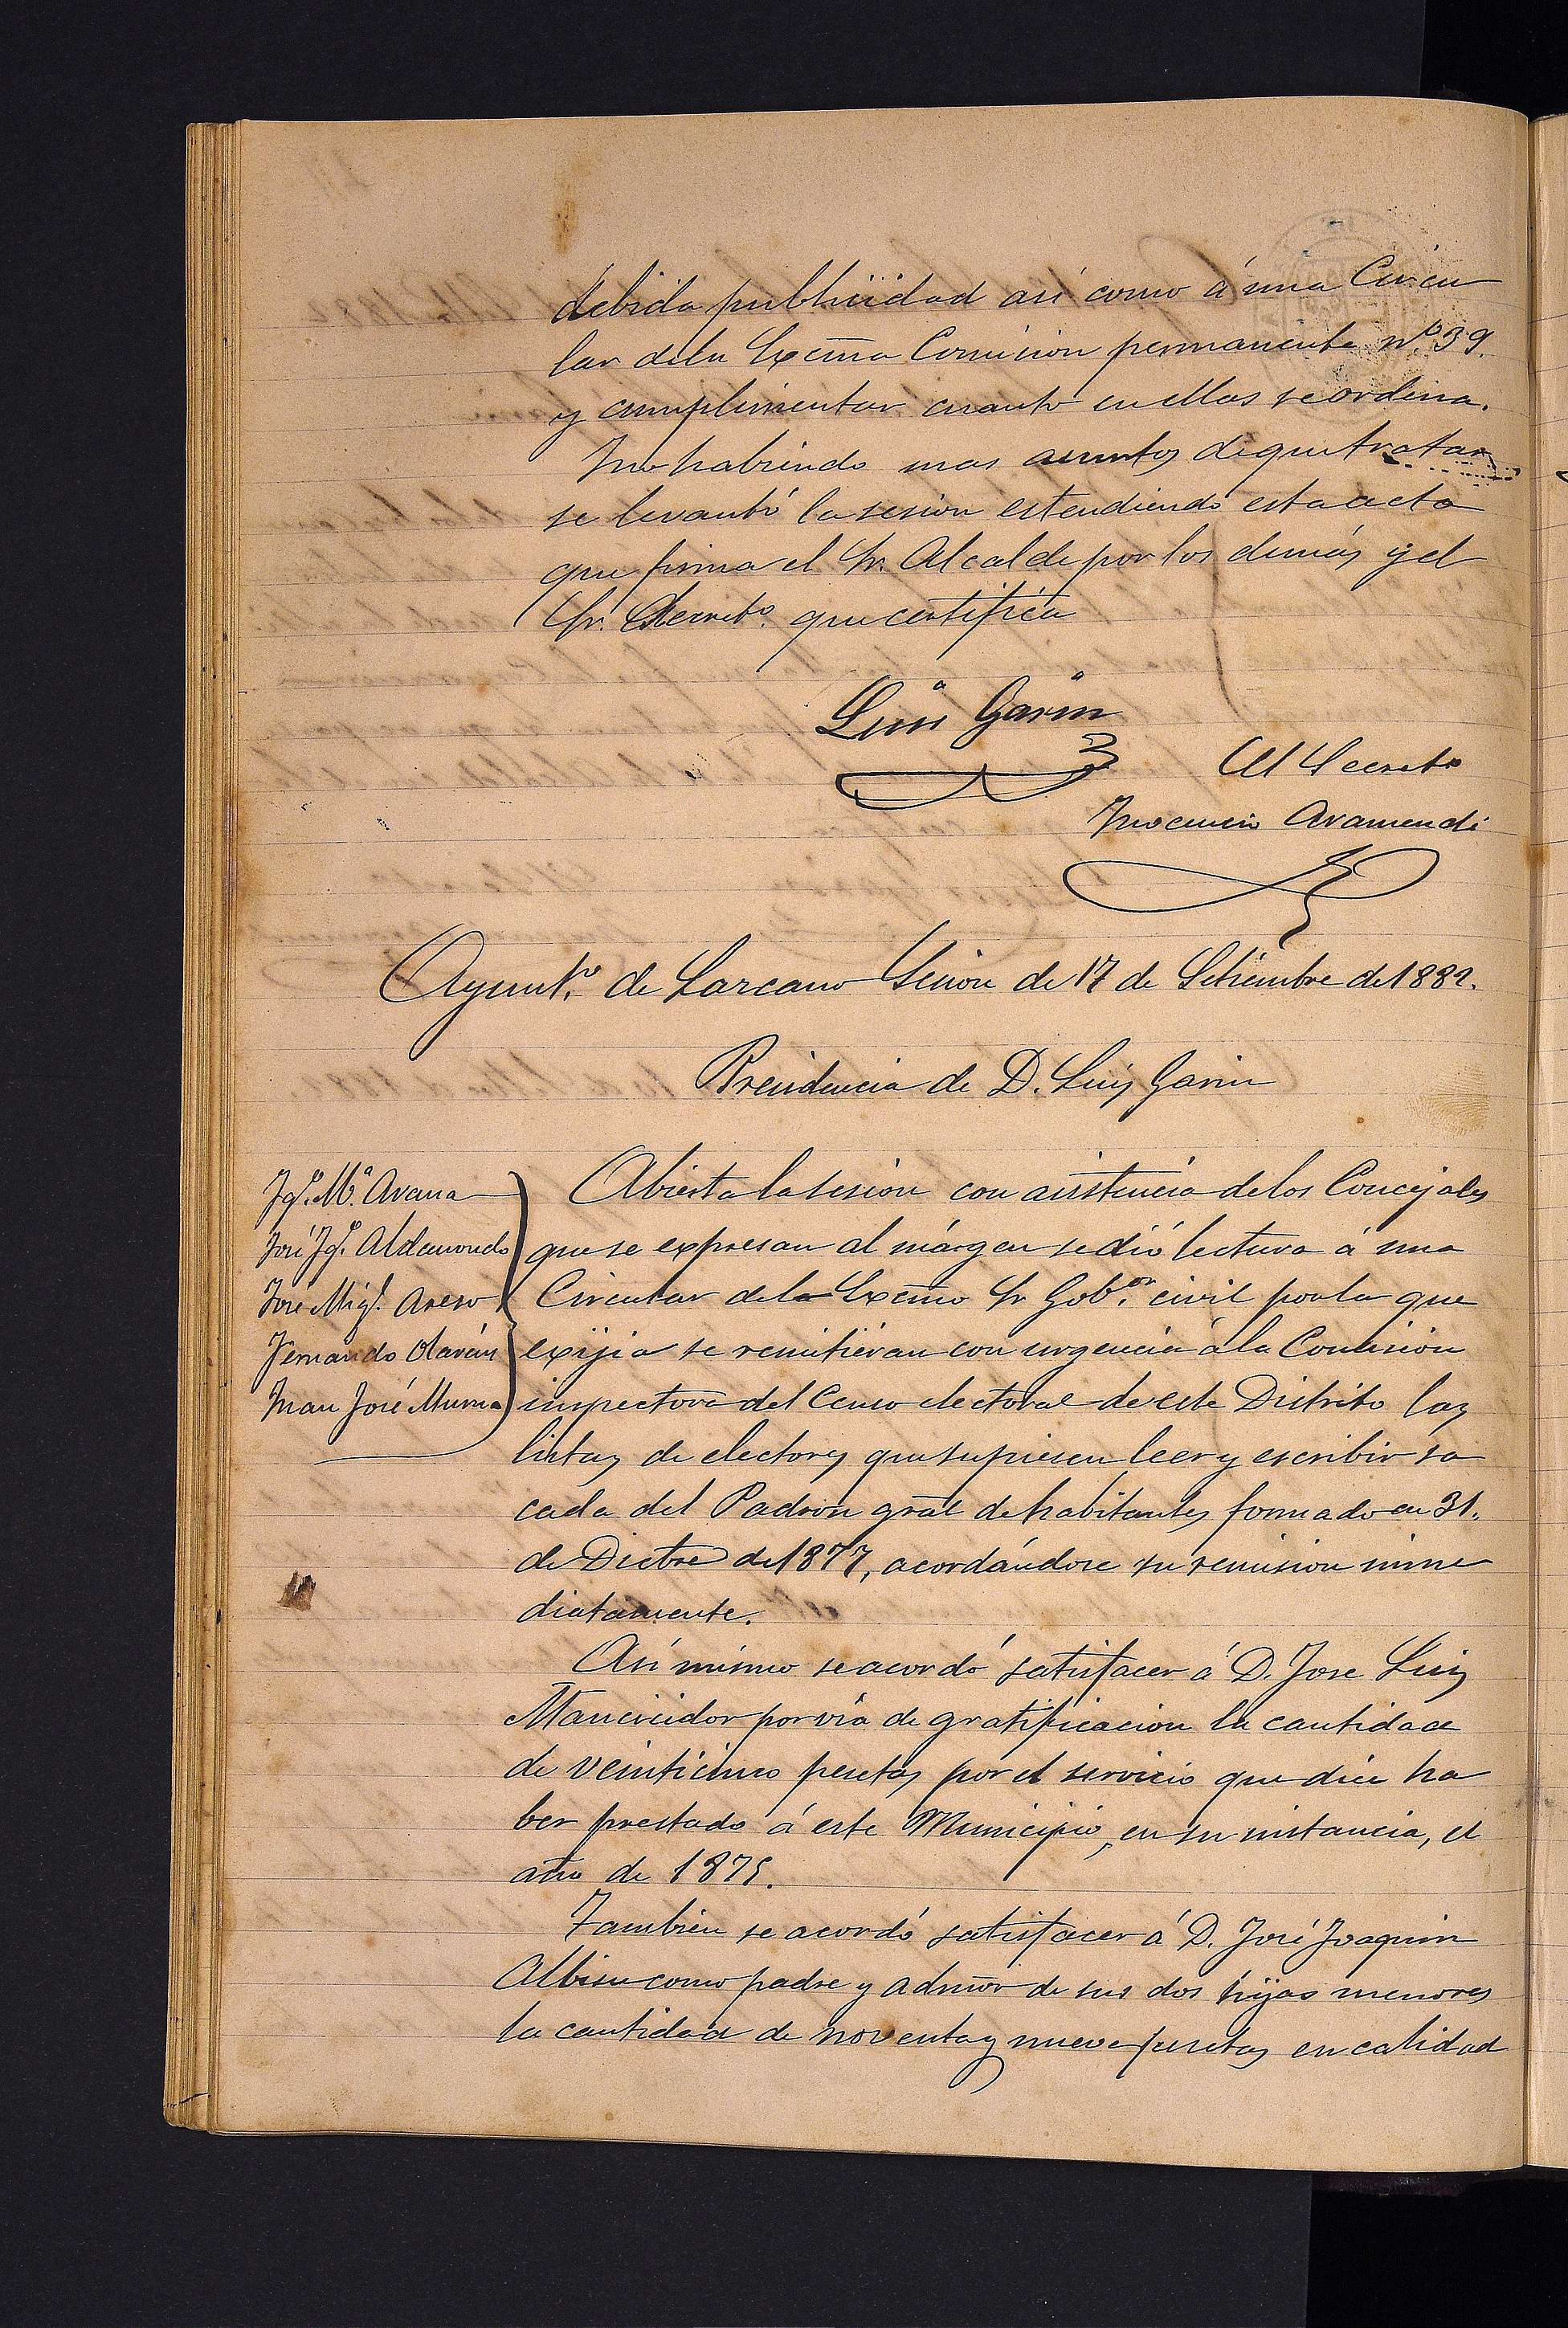 debida publicidad asi como á una Circu
lar dela Excma Comision permanente nº 39.
y cumplimentar cuanto en ellas se ordena.
Y no habiendo mas asuntos de que tratar
se levantó la sesion estendiendo esta acta
que firma el Sr. Alcalde por los demás y el
Sr. Secretº. que certifica
Luis Garin
El Secretº
Inocencio Aramendi
Ayuntº. de Lazcano Sesion de 17 de Setiembre de 1882.
Presidencia de D. Luis Garin
Jqº. Mª. Arana
José Jqº. Aldamondo
José Migl. Asero
Fernando Olaran
Juan José Murua
Abierta la sesion con asistencia delos Concejales
que se expresan al márgen se dió lectura á una
Circular dela Excmo Sr Gobor. civil por la que
exijia se remitieran con urgencia á la Comision
inspectora del Censo electoral de este Distrito las
listas de electores que supiesen leer y escribir sa
cada del Padron gral de habitantes formado en 31.
de Dictre de 1877, acordándose su remision inme
diatamente.
Asi mismo se acordó satisfacer á D. Jose Luis
Mancicidor por via de gratificacion la cantidad
de veinticinco pesetas por el servicio que dice ha
ber prestado á este Municipio, en su instancia, el
año de 1875.
Tambien se acordó satisfacer á D. José Joaquin
Albisu como padre y admor de sus dos hijas menores
la cantidad de noventa y nueve pesetas en calidad